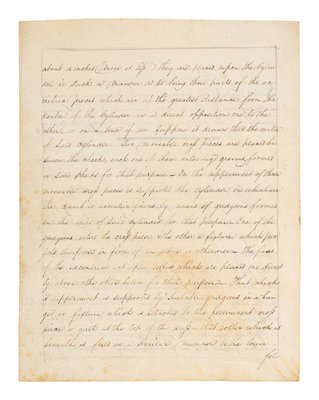 about 10 inches, (more or less) they are placed upon the cylin
der in such a manner as to bring those parts of the ec
centric pieces which are at the greatest distance from the
centre of the Cylinder in direct opposition one to the
other, or on a line if we suppose it drawn thro the centre
of said cylinder. Two moveable crop pieces are placed be
tween the cheeks, each one of them entering grooves formed
in said Cheeks for that purpose — On the uppermost of these
moveable crop pieces is supported the Cylinder on which are
the eccentric pieces, by means of gudgeons formed
in the ends of said Cylinder for that purpose. One of the
gudgeons enters the crop piece. The other a fixture which
its in form of or otherwise. The faces
of the eccentrics act upon rollers which are placed one direct
ly above the other below for that purpose. That which
is uppermost is supported by suitable gudgeons in a han
ger or fixture which is attached to the permanent crop
piece or girth at the top of the press — that roller which is
beneath is fixed in a similar manner to the lower